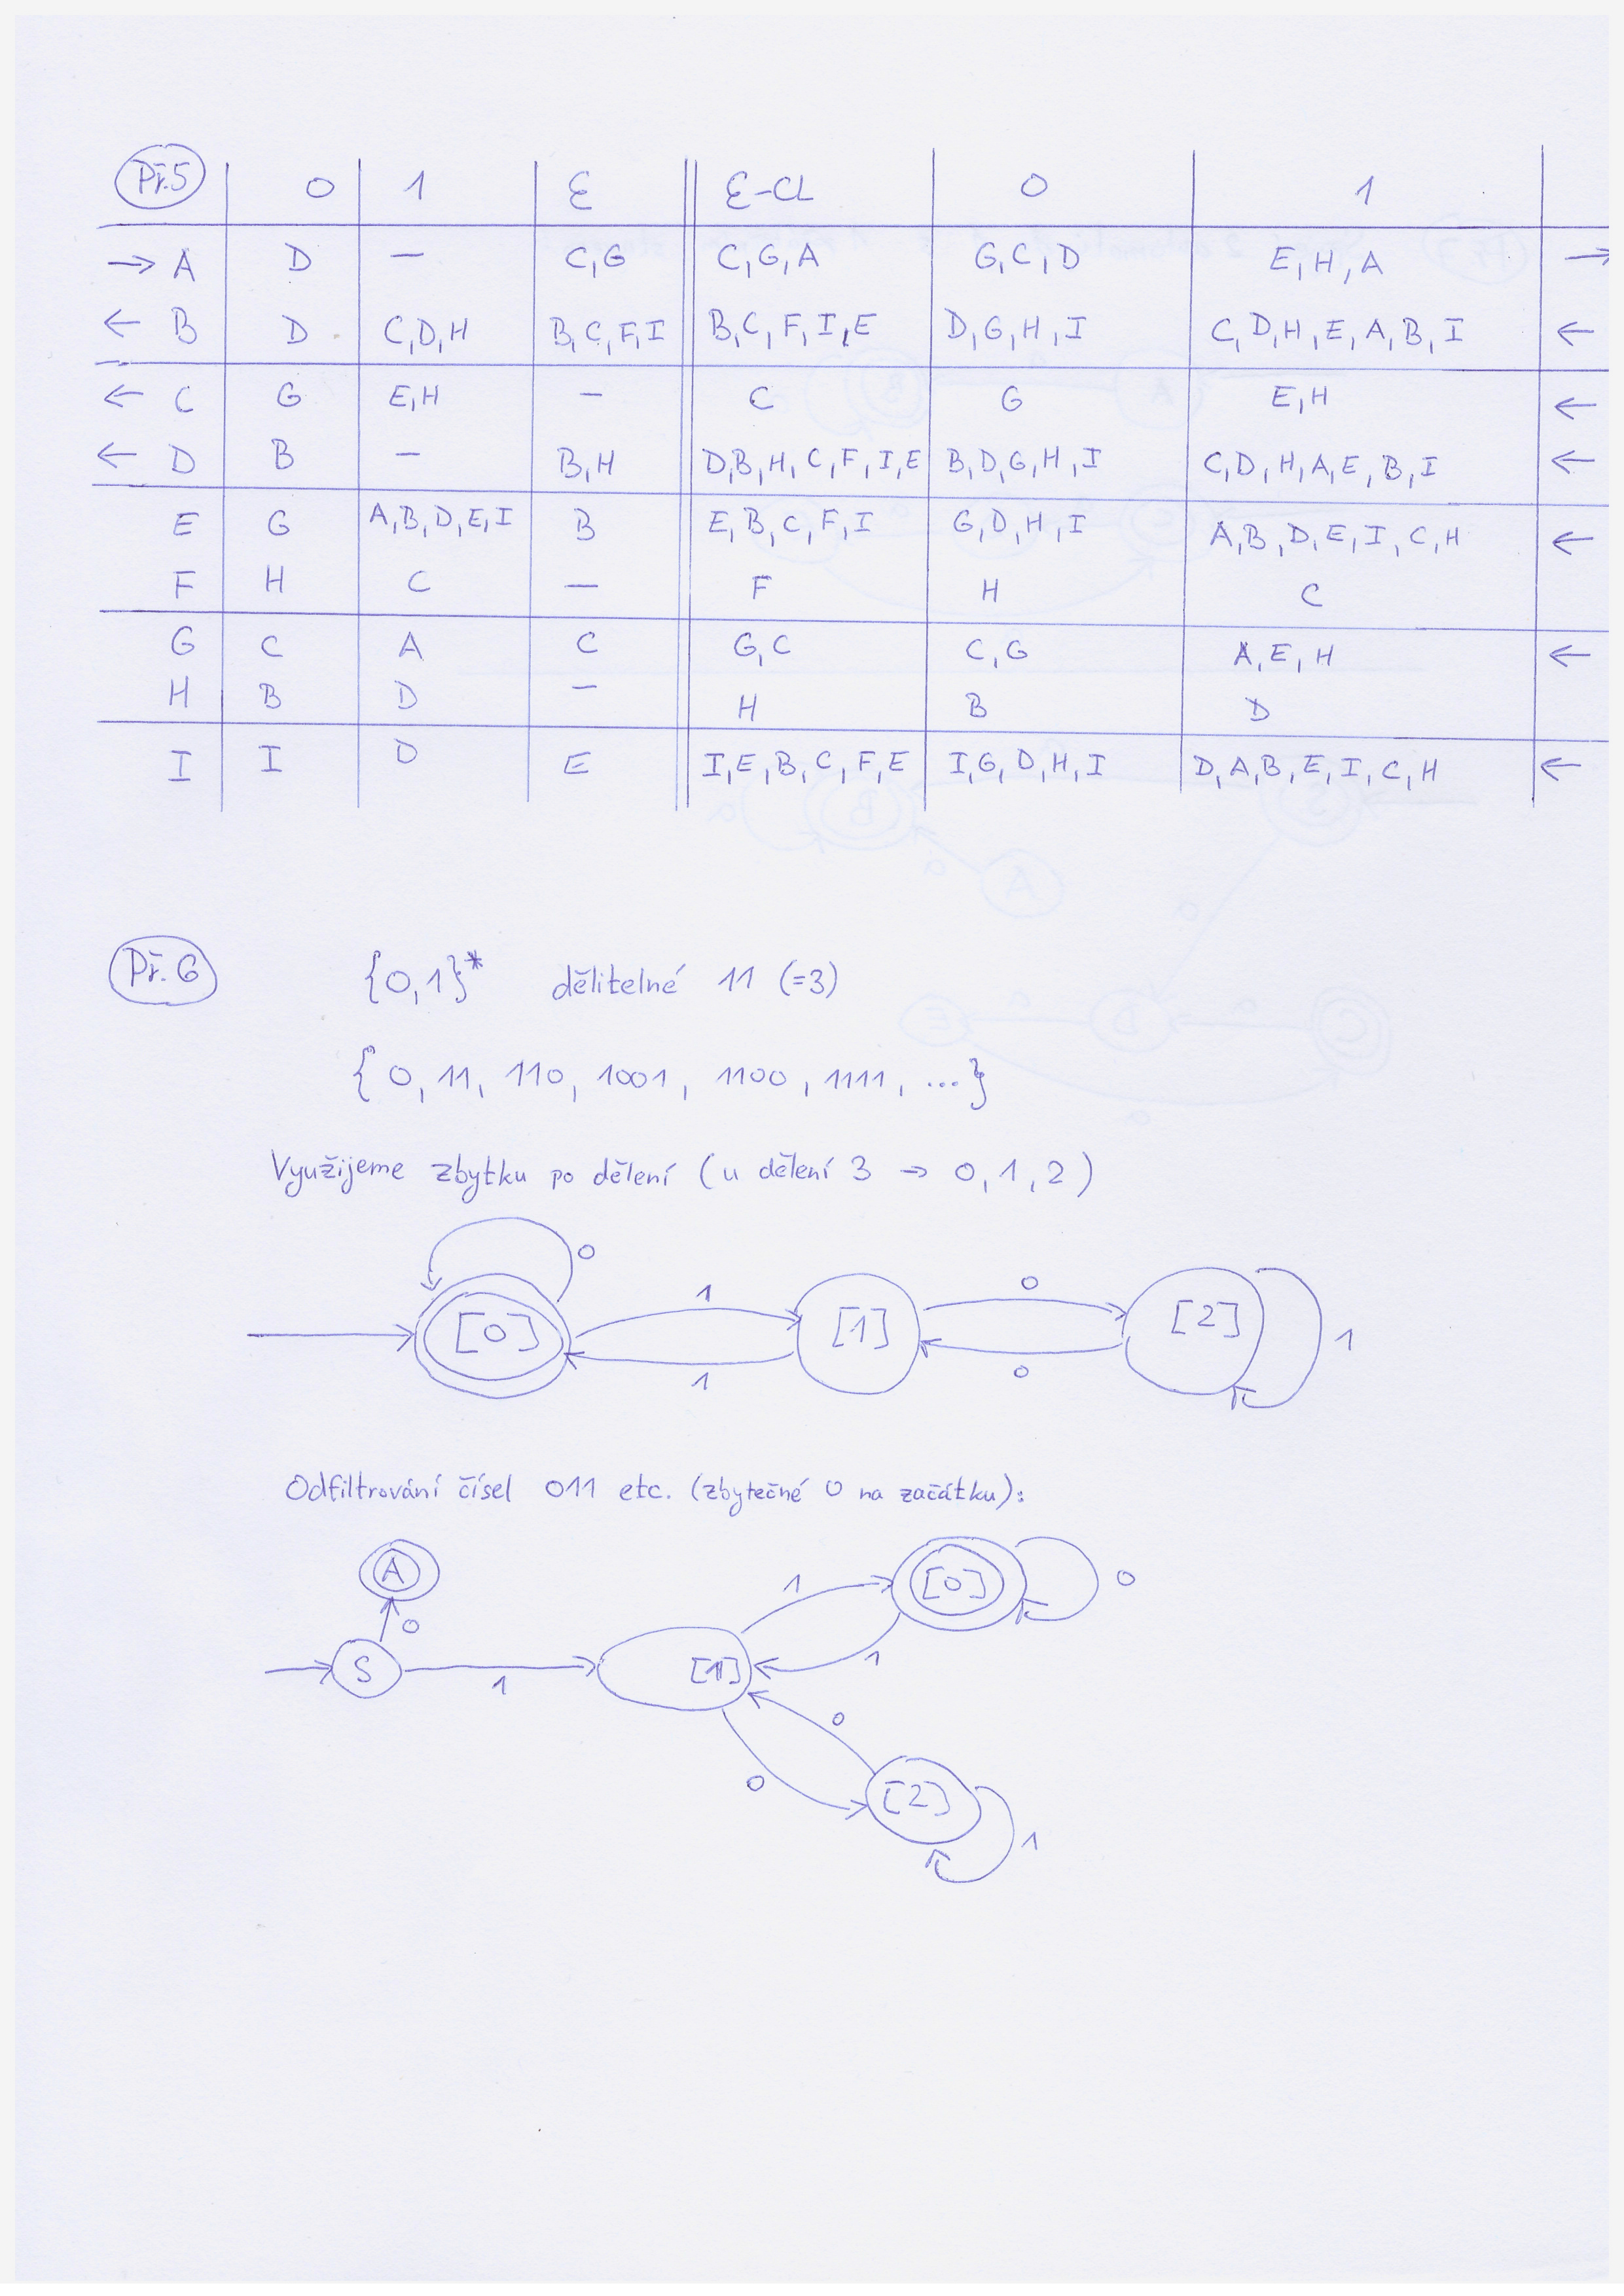 Př.5 0 1 ε ε-CL 0 1
→ A D — C,G C,G,A G,C,D E,H,A →
← B D C,D,H B,C,F,I B,C,F,I,E D,G,H,I C,D,H,E,A,B,I ←
← C G E,H — C G E,H ←
← D B — B,H D,B,H,C,F,I,E B,D,G,H,I C,D,H,A,E,B,I ←
E G A,B,D,E,I B E,B,C,F,I G,D,H,I A,B,D,E,I,C,H ←
F H C — F H C
G C A C G,C C,G A,E,H ←
H B D — H B D
I I D E I,E,B,C,F,E I,G,D,H,I D,A,B,E,I,C,H ←
Př.6 {0,1}* dělitelné 11 (=3)
{0, 11, 110, 1001, 1100, 1111, ...}
Využijeme zbytku po dělení (u dělení 3 → 0,1,2)
0
[0] 1 [1] 0 [2] 1
1 0
Odfiltrování čísel 011 etc. (zbytečné 0 na začátku):
A 1 [0] 0
0
S 1 [1] 1
0
0 [2]
1